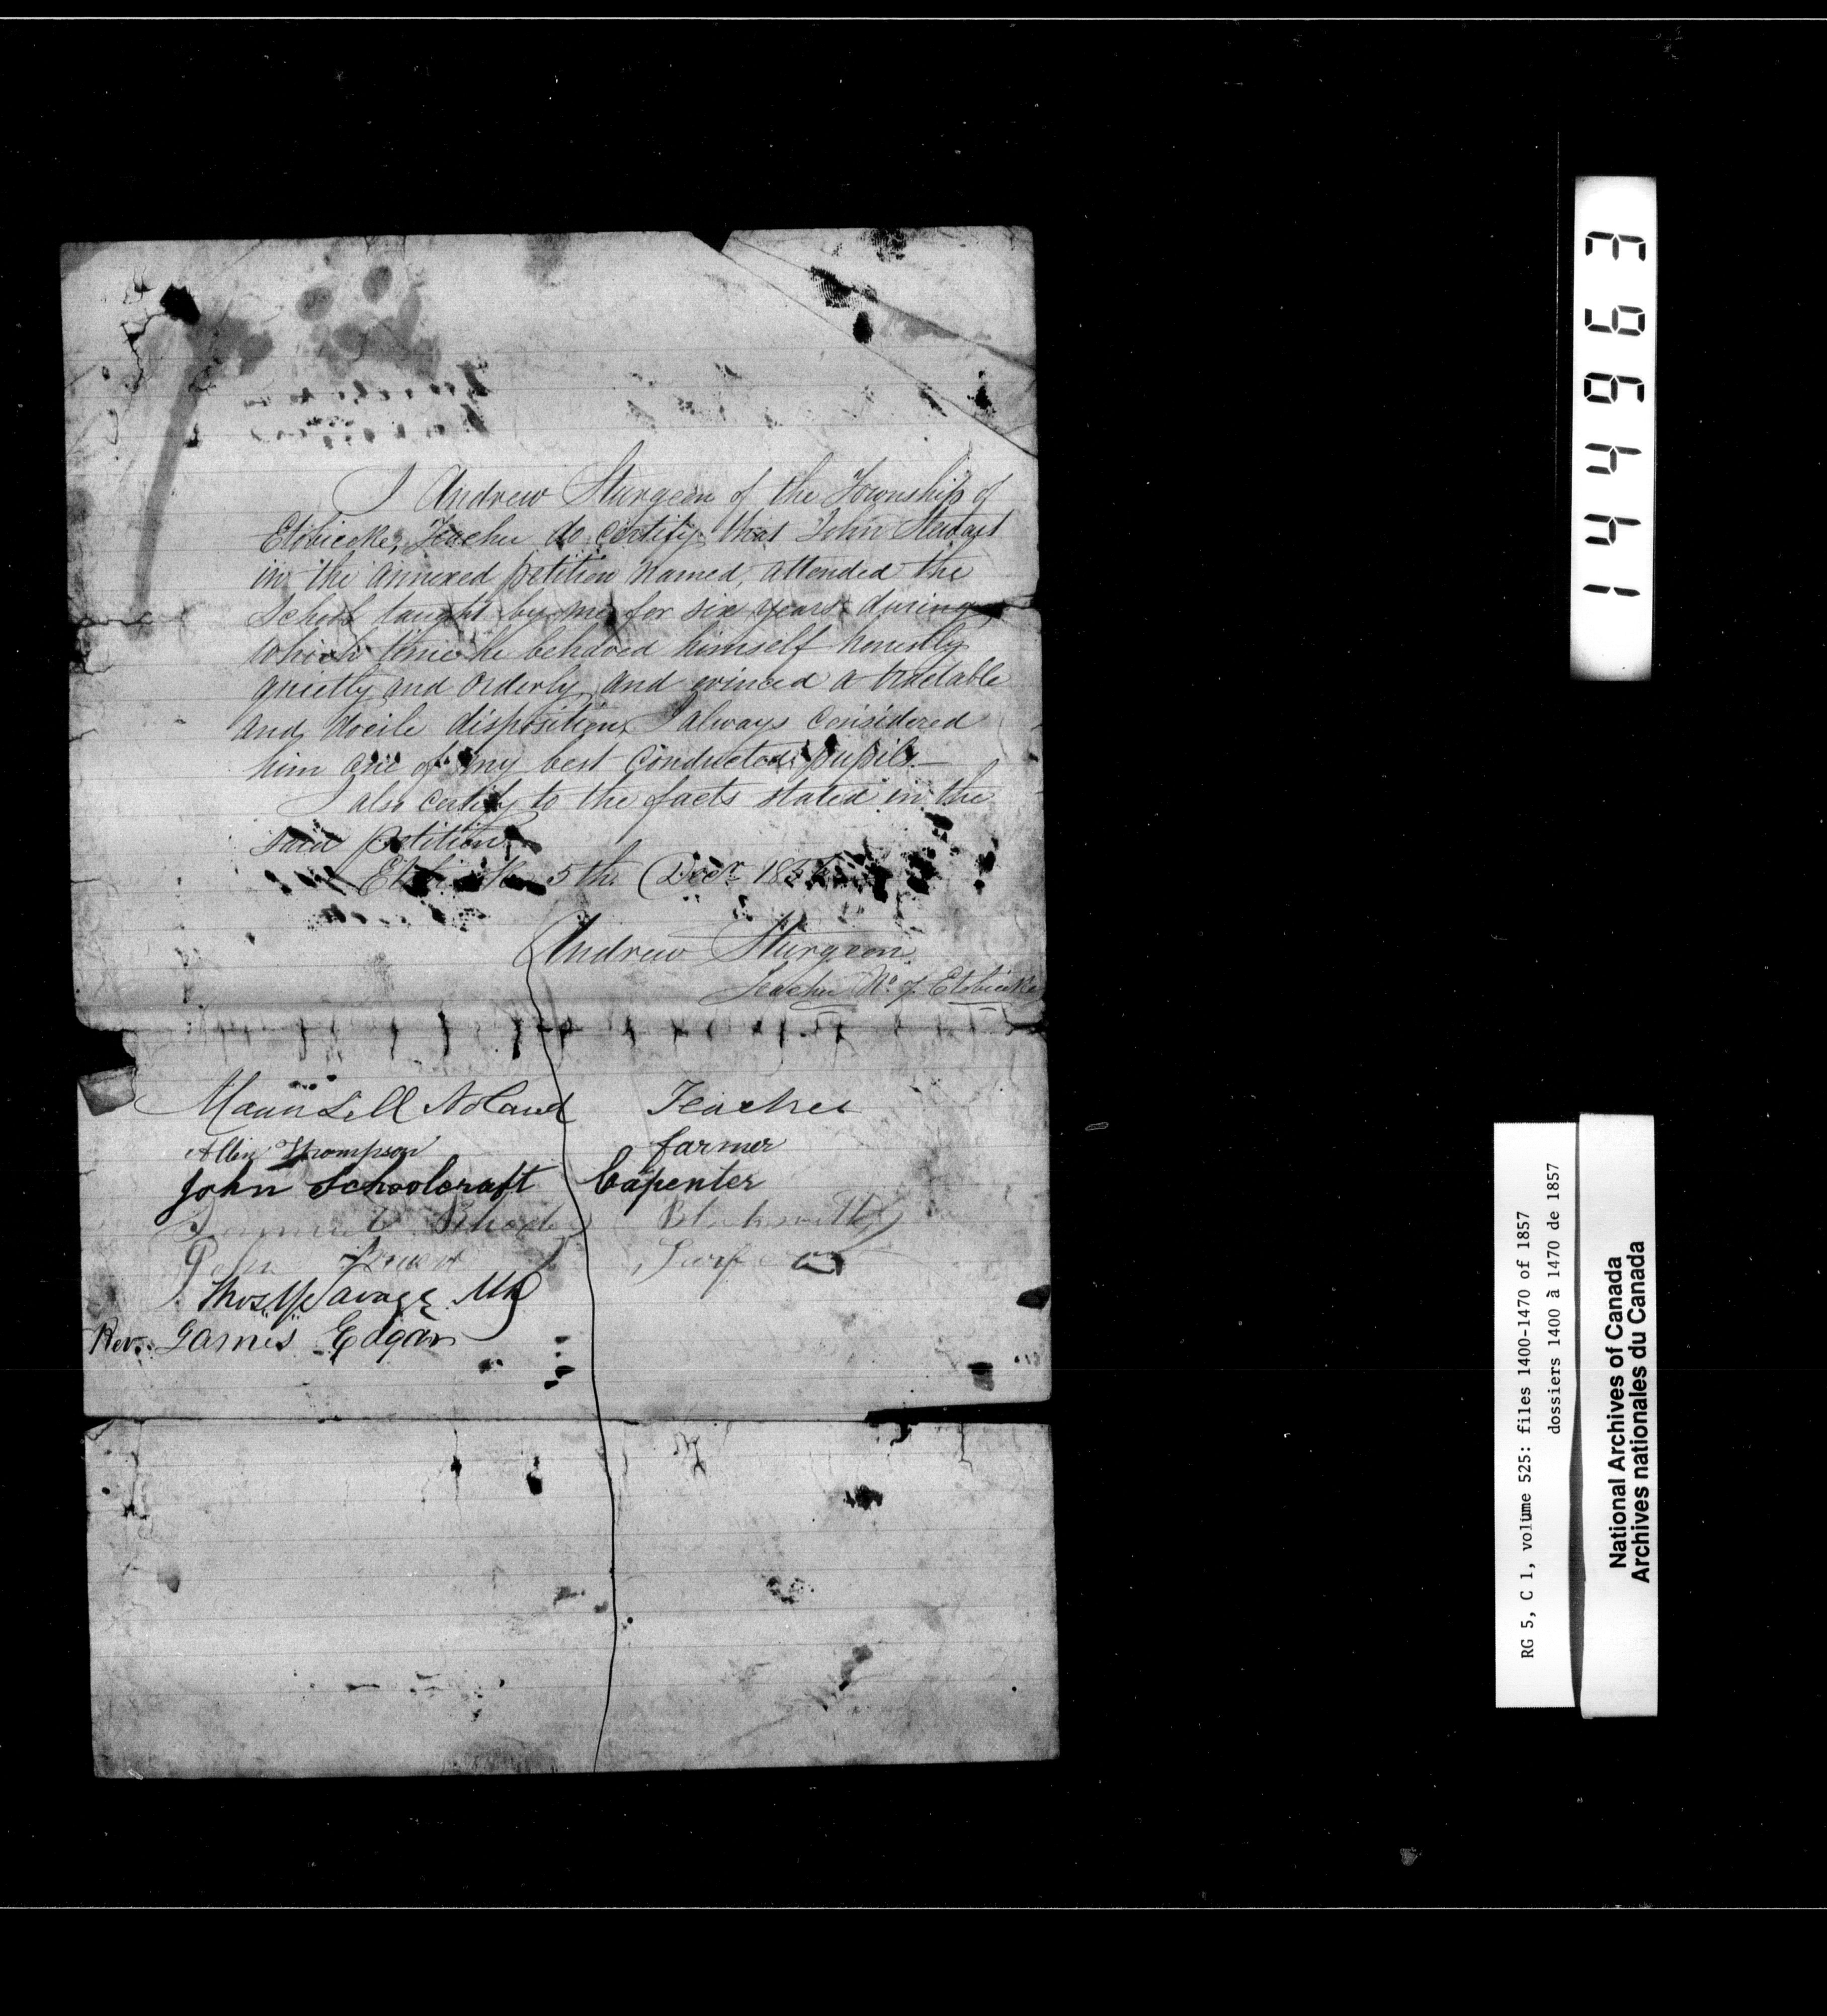 I Andrew Sturgeon of the Township of
Etobicoke, Teacher do certify that John Stewart
in the annexed petition named, attended the
School taught by me for six years during
which time he behaved himself honestly
quietly and orderly and evinced a tractable
and docile disposition, I always considered
him one of my best conducted pupils.—
I also certify to the facts stated in the
said petition
Etobicoke 5th Decr. 185
Andrew Sturgeon
Teacher No. 7 Etobicoke
Maunsell Noland Teacher
Allin Thompson farmer
John Schoolcraft Capenter
Blacksmith
John
Thos. Savage MD
Rev. James Edgar
144963
RG 5, C 1, volume 525: files 1400-1470 of 1857
dossiers 1400 à 1470 de 1857
National Archives of Canada
Archives nationales du Canada